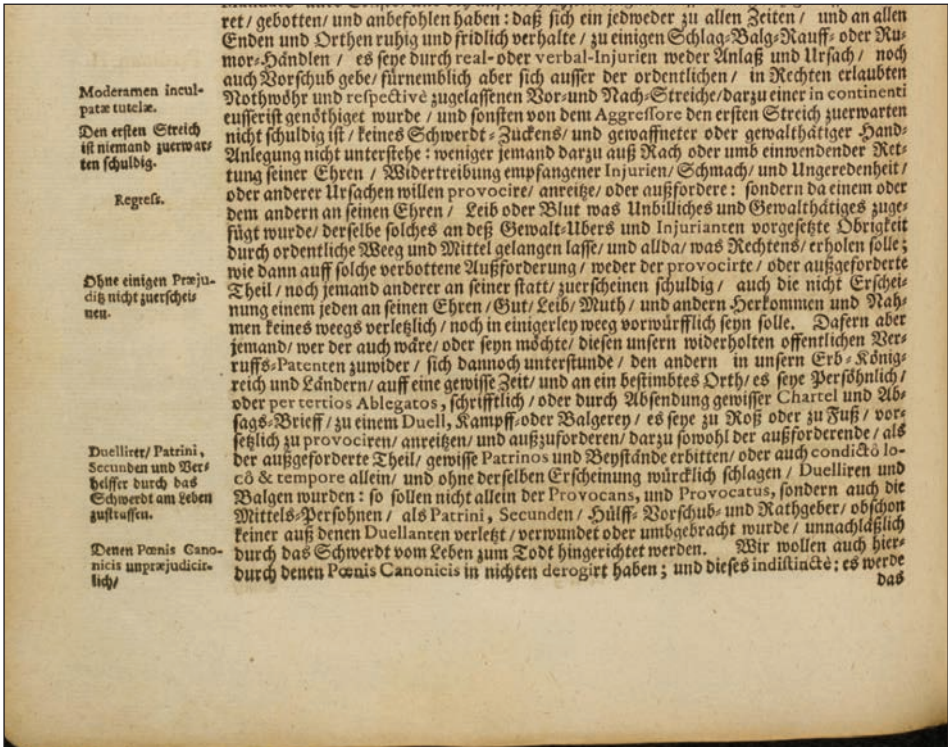 ret/ gebotten/ und anbefohlen haben: daß sich ein jedweder zu allen Zeiten / und an allen
Enden und Orthen ruhig und fridlich verhalte / zu einigen Schlag-Balg-Rauff- oder Ru-
mor-Händlen / es seye durch real- oder verbal-Injurien weder Anlaß und Ursach / noch
auch Vorschub gebe/ fürnemblich aber sich ausser der ordentlichen / in Rechten erlaubten
Nothwöhr und respectivè zugelassenen Vor-und Nach-Streiche/darzu einer in continenti
eusserist genöthiget wurde / und sonsten von dem Aggressore den ersten Streich zuerwarten
nicht schuldig ist / keines Schwerdt-Zuckens/ und gewaffneter oder gewalthätiger Hand-
Anlegung nicht unterstehe: weniger jemand darzu auß Rach oder umb einwendender Ret-
tung seiner Ehren / Widertreibung empfangener Injurien/ Schmach/ und Ungeredenheit/
oder anderer Ursachen willen provocire/ anreitze/ oder außfordere: sondern da einem oder
dem andern an seinen Ehren / Leib oder Blut was Unbilliches und Gewalthätiges zuge-
fügt wurde/ derselbe solches an deß Gewalt-Ubers und Injurianten vorgesetzte Obrigkeit
durch ordentliche Weeg und Mittel gelangen lasse/ und allda/ was Rechtens/ erholen solle;
wie dann auff solche verbottene Außforderung / weder der provocirte / oder außgeforderte
Theil / noch jemand anderer an seiner statt/ zuerscheinen schuldig / auch die nicht Erschei-
nung einem jeden an seinen Ehren /Gut/ Leib/ Muth / und andern Herkommen und Nah-
men keines weegs verletzlich / noch in einigerley weeg vorwürfflich seyn solle. Dafern aber
jemand/ wer der auch wäre/ oder seyn möchte/ diesen unsern widerholten offentlichen Ver-
ruffs-Patenten zuwider / sich dannoch unterstunde / den andern in unsern Erb-König-
reich und Ländern/ auff eine gewisse Zeit/ und an ein bestimbtes Orth/ es seye Persöhnlich/
oder per tertios Ablegatos, schrifftlich / oder durch Absendung gewisser Chartel und Ab-
sags-Brieff / zu einem Duell, Kampff-oder Balgerey / es seye zu Roß oder zu Fuß / vor-
setzlich zu provociren/ anreitzen/ und außzuforderen/ darzu sowohl der außforderende / als
der außgeforderte Theil/ gewisse Patrinos und Beystände erbitten/ oder auch condictô lo-
cô & tempore allein/ und ohne derselben Erscheinung würcklich schlagen / Duelliren und
Balgen wurden: so sollen nicht allein der Provocans, und Provocatus, sondern auch die
Mittels-Persohnen / als Patrini, Secunden / Hülff- Vorschub- und Rathgeber/ obschon
keiner auß denen Duellanten verletzt / verwundet oder umbgebracht wurde / unnachläßlich
durch das Schwerdt vom Leben zum Todt hingerichtet werden. Wir wollen auch hier-
durch denen Pœnis Canonicis in nichten derogirt haben; und dieses indistinctè: es werde
das
Moderamen incul-
patæ tutelæ.
Den ersten Streich
ist niemand zuerwar-
ten schuldig.
Regress.
Ohne einigen Præju-
ditz nicht zuerschei-
nen.
Duellirer/ Patrini,
Secunden und Ver-
helffer durch das
Schwerdt am Leben
zustraffen.
Denen Pœnis Cano-
nicis unpræjudicir-
lich/